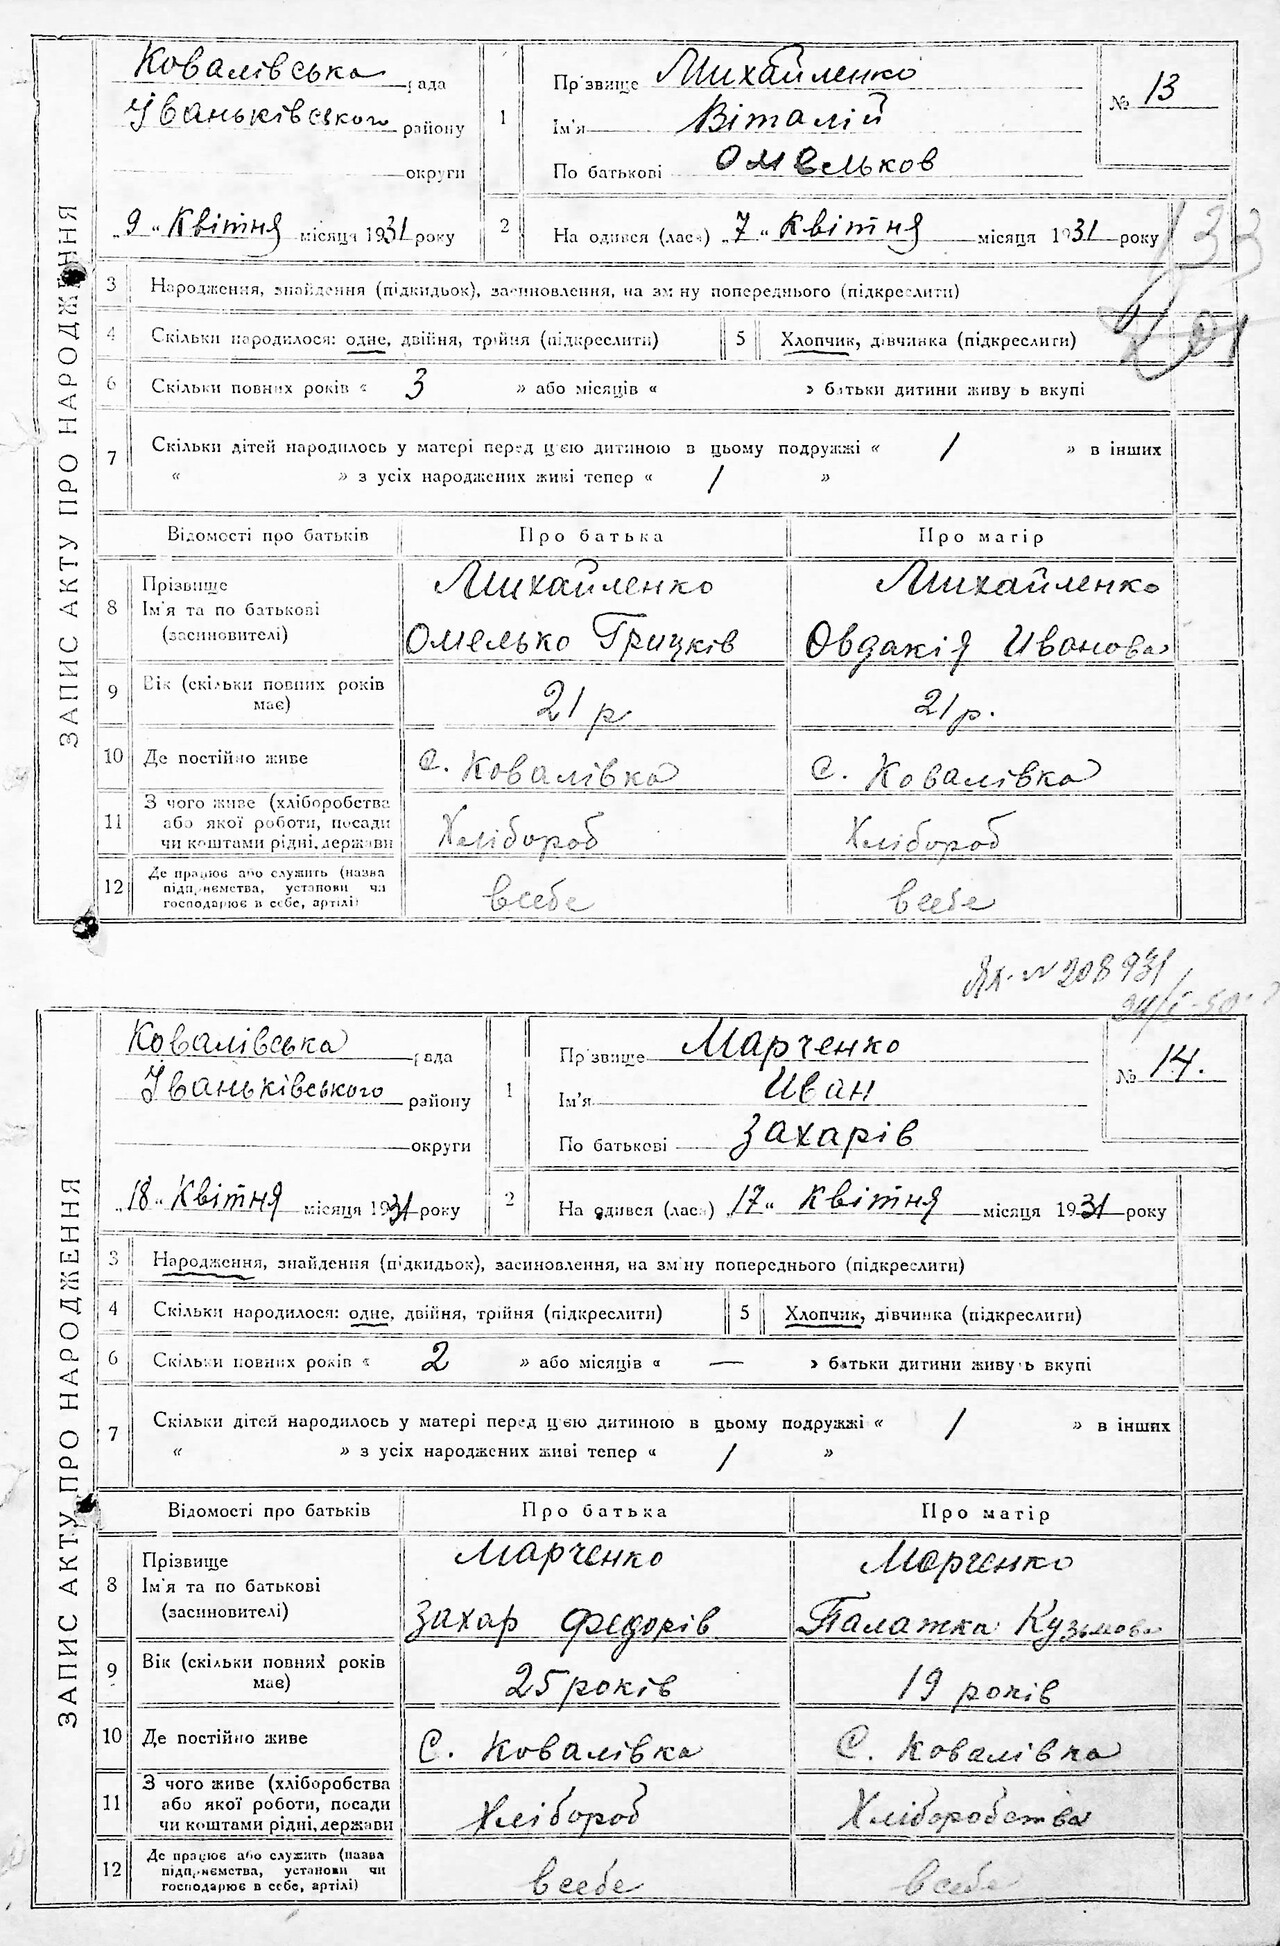 ЗАПИС АКТУ ПРО НАРОДЖЕННЯ
Ковалівська рада
Іваньківського району
округи
„9" Квітня місяця 1931 року
1
Прізвище Михайленко
Ім'я Віталій
По батькові Омельков
№ 13
2 Народився (лася) „7" Квітня місяця 1931 року
3 Народження, знайдення (підкидьок), засиновлення, на зміну попереднього (підкреслити)
4 Скільки народилося: одне, двійня, трійня (підкреслити) 5 Хлопчик, дівчинка (підкреслити)
6 Скільки повних років « 3 » або місяців « » батьки дитини живуть вкупі
7 Скільки дітей народилось у матері перед цією дитиною в цьому подружжі « 1 » в інших
« » з усіх народжених живі тепер « 1 »
Відомості про батьків Про батька Про матір
8 Прізвище
Ім'я та по батькові
(засиновителі)
Михайленко
Омелько Грицків
Михайленко
Овдакія Иванова
9 Вік (скільки повних років
має)
21 р
21 р.
10 Де постійно живе с. Ковалівка с. Ковалівка
11 З чого живе (хліборобства
або якої роботи, посади
чи коштами рідні, держави
Хлібороб
Хлібороб
12 Де працює або служить (назва
підприємства, установи чи
господарює в себе, артілі)
всебе
всебе
№ 208931
ЗАПИС АКТУ ПРО НАРОДЖЕННЯ
Ковалівська рада
Іваньківського району
округи
„18" Квітня місяця 1931 року
1
Прізвище Марченко
Ім'я Иван
По батькові Захарів
№ 14.
2 Народився (лася) „17" Квітня місяця 1931 року
3 Народження, знайдення (підкидьок), засиновлення, на зміну попереднього (підкреслити)
4 Скільки народилося: одне, двійня, трійня (підкреслити) 5 Хлопчик, дівчинка (підкреслити)
6 Скільки повних років « 2 » або місяців « — » батьки дитини живуть вкупі
7 Скільки дітей народилось у матері перед цією дитиною в цьому подружжі « 1 » в інших
« » з усіх народжених живі тепер « 1 »
Відомості про батьків Про батька Про матір
8 Прізвище
Ім'я та по батькові
(засиновителі)
Марченко
Захар Федорів
Марченко
Палажка Кузьмова
9 Вік (скільки повних років
має)
25 років
19 років
10 Де постійно живе С. Ковалівка С. Ковалівка
11 З чого живе (хліборобства
або якої роботи, посади
чи коштами рідні, держави
Хлібороб
Хліборобства
12 Де працює або служить (назва
підприємства, установи чи
господарює в себе, артілі)
всебе
всебе